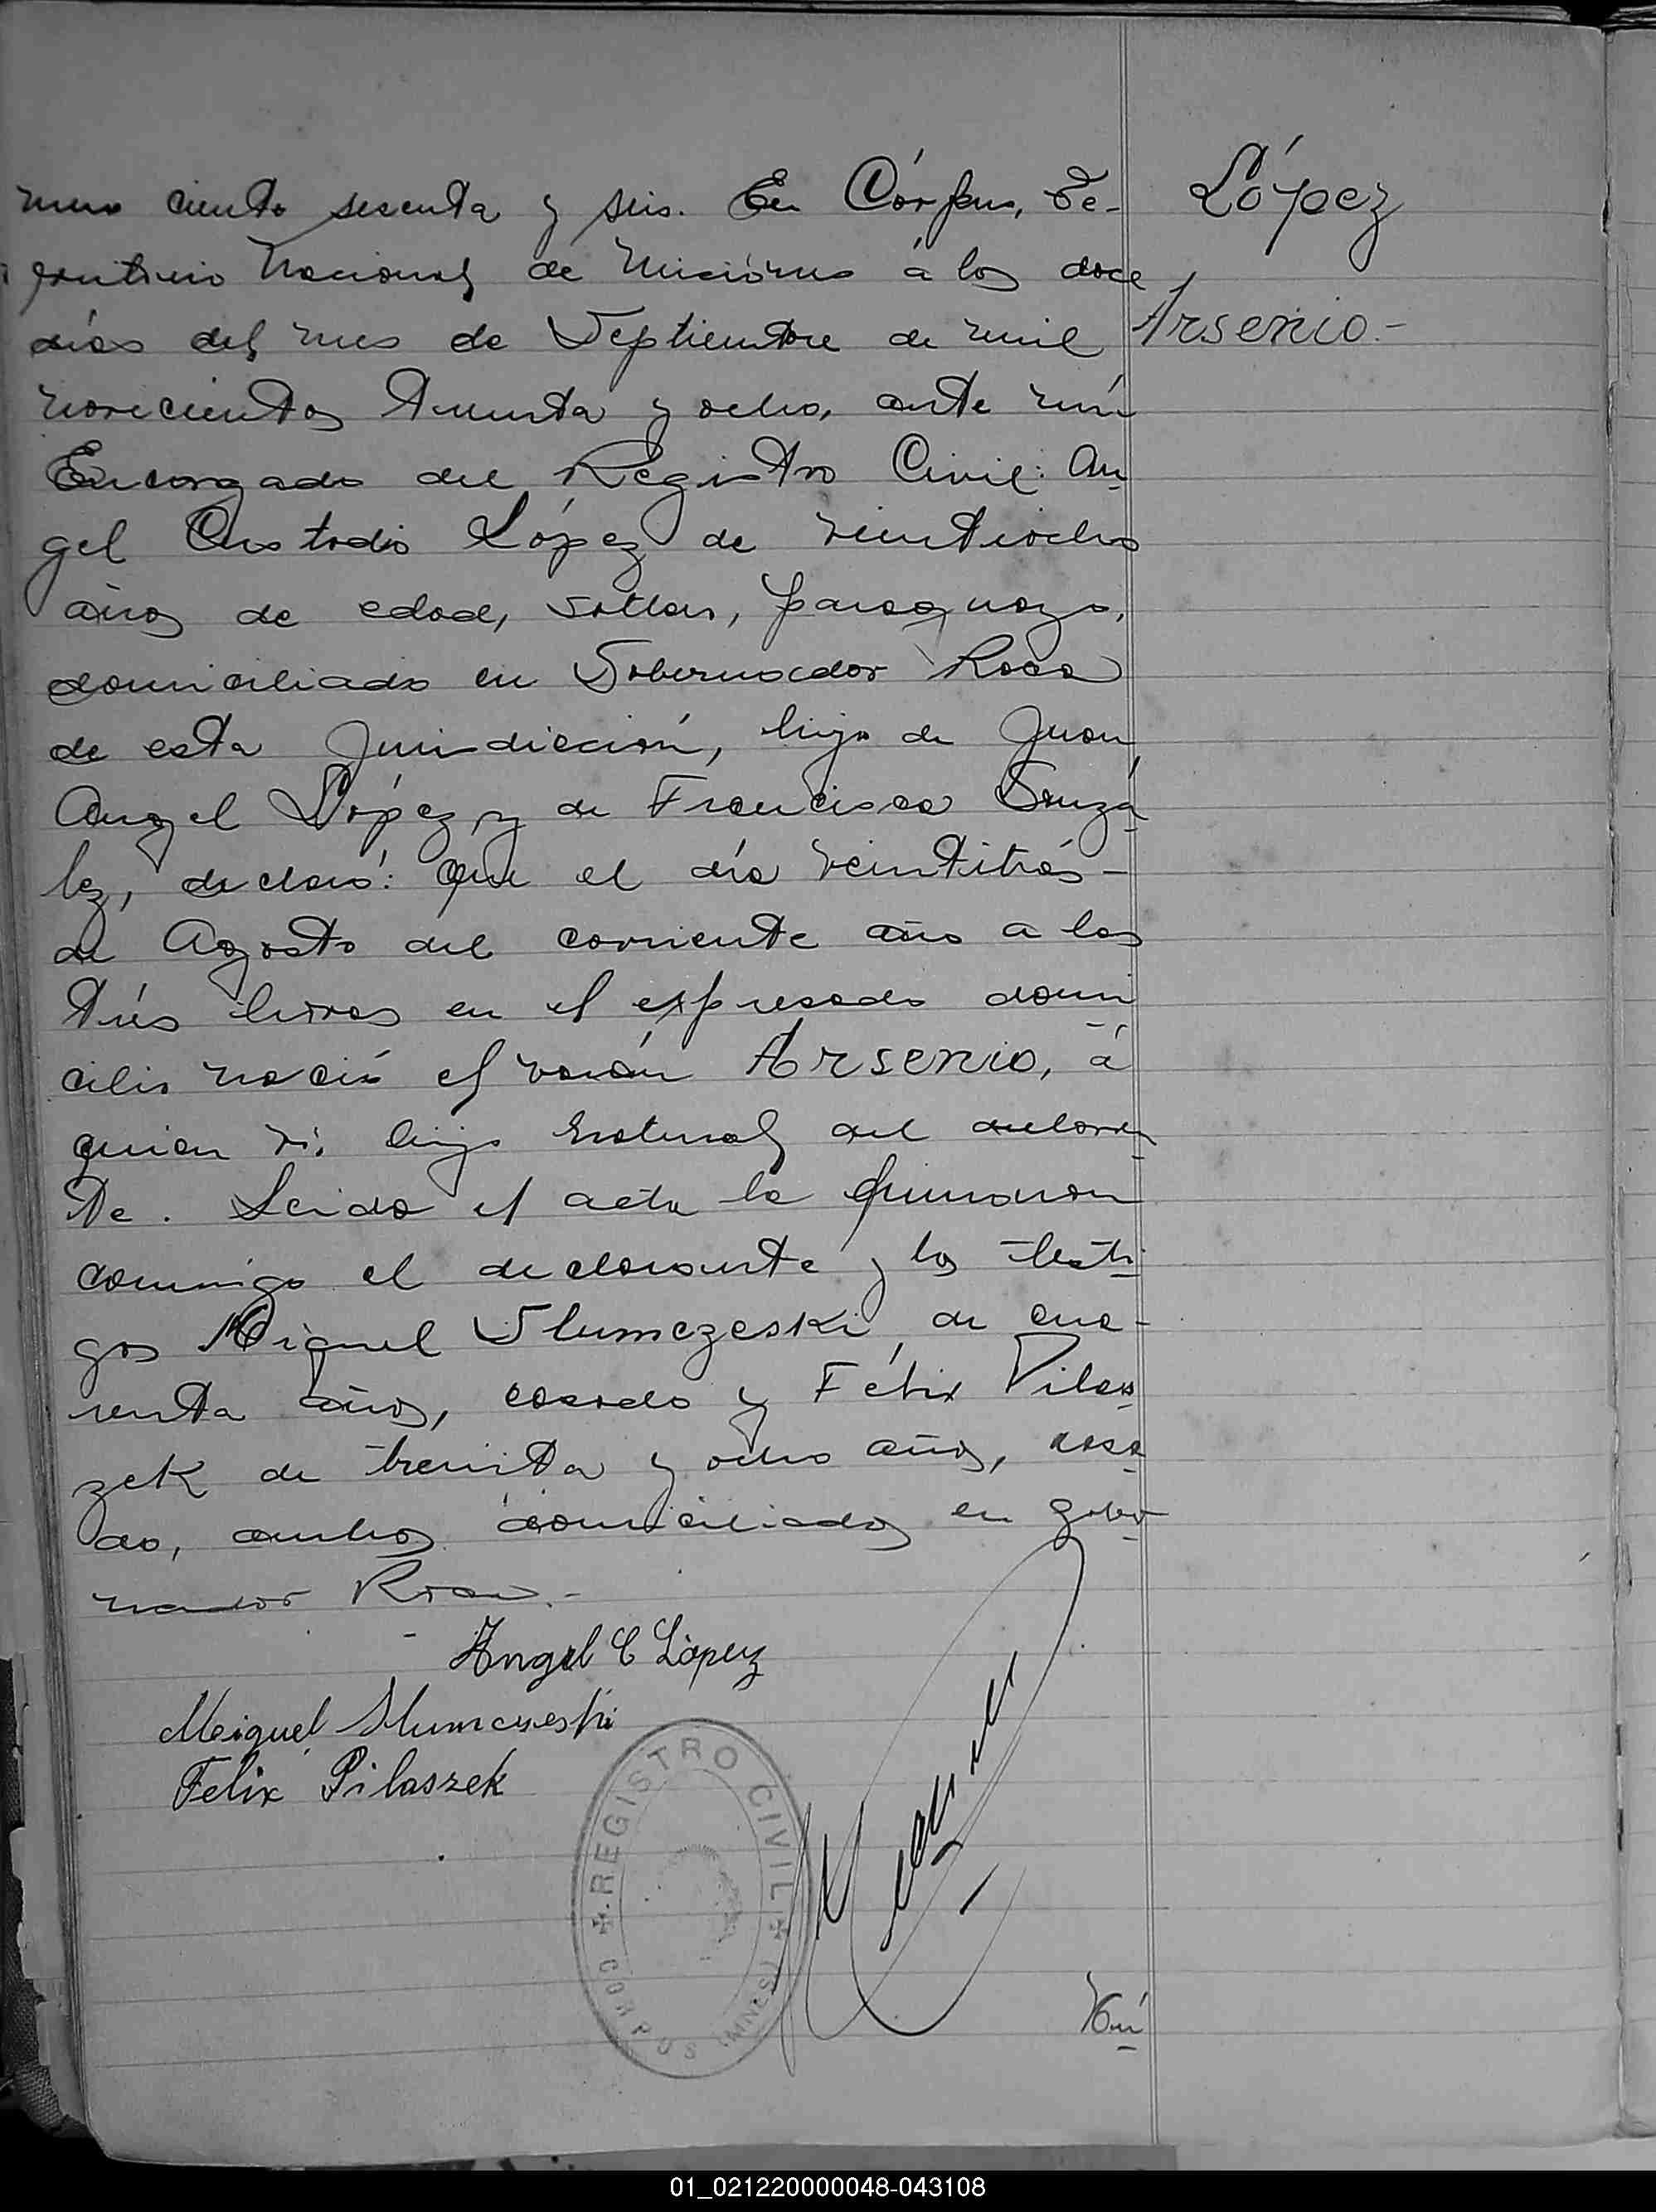 López
Arsenio.-
mero ciento sesenta y seis. En Córpus, Te-
rritorio Nacional de Misiónes á los doce
días del mes de Septiembre de mil
novecientos treinta y ocho, ante mí
Encargado del Registro Civil: An
gel Custodio López de veintiocho
años de edad, soltero, paraguayo,
domiciliado en Gobernador Roca
de esta Jurisdicción, hijo de Juan
Angel López y de Francisca Gonzá
lez, declaró: Que el día veintitrés-
de Agosto del corriente año a las
trés horas en el expresado domi
cilio nació el varón Arsenio, á
quien ví, hijo natural del declaran
te. Leida el acta la firmaron
conmigo el declarante y los testi
gos Miguel Slumczeski, de cua-
renta años, casado y Félix Pilas
zek de treinta y ocho años, casa
do, ambos domiciliados en Gober
nador Roca.-
Angel C López
Meiguel Slumczeski
Felix Pilaszek
REGISTRO CIVIL
CORPUS (MNES)
Nú
01_021220000048-043108